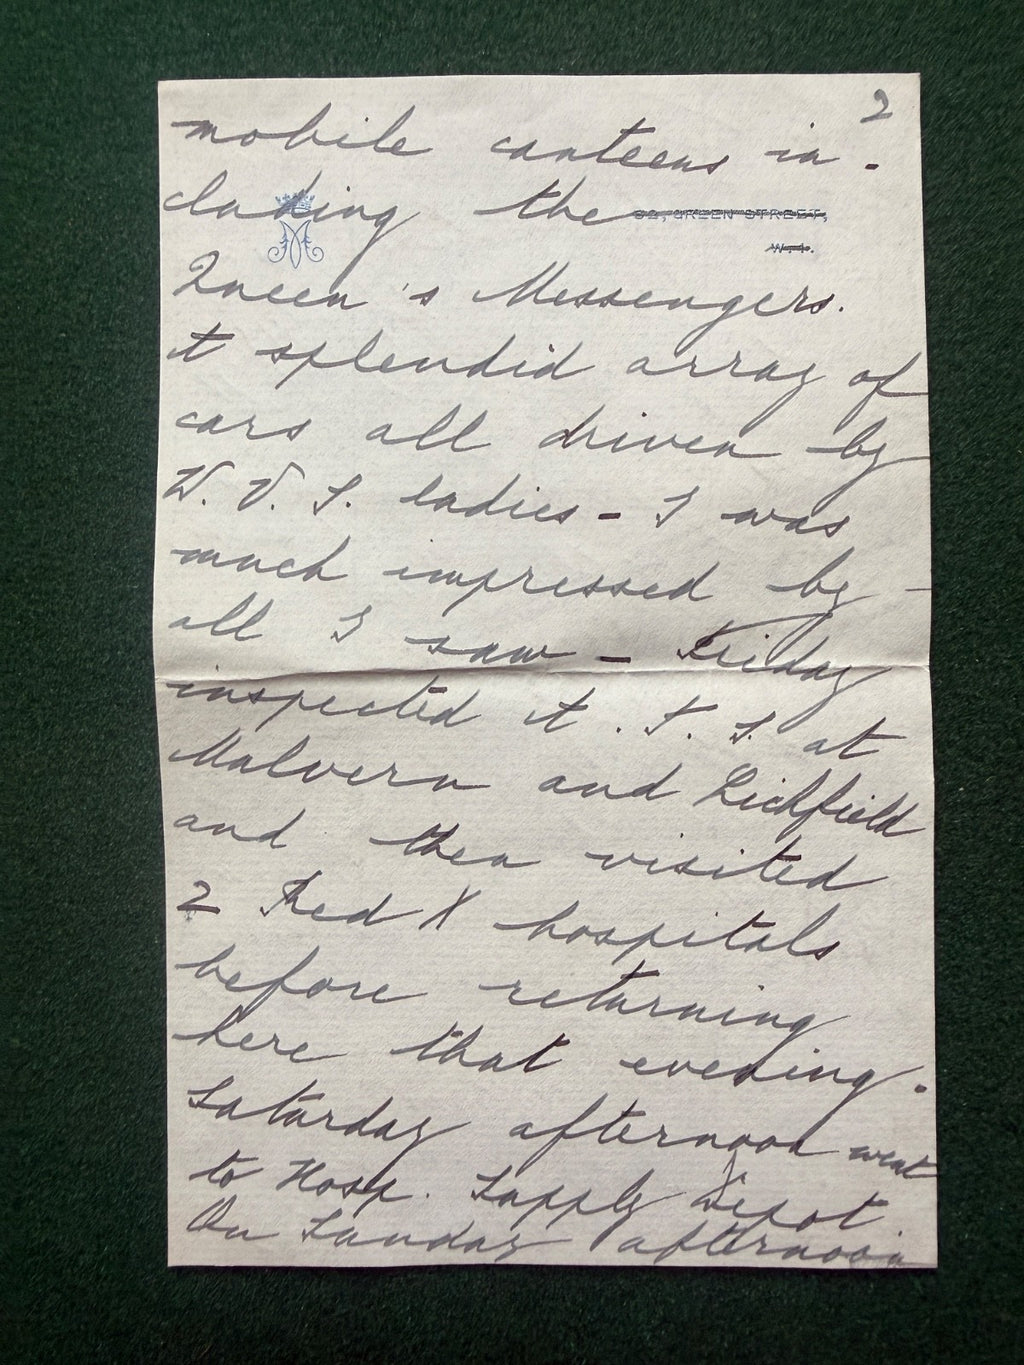 2
mobile canteens in-
cluding the
32, GREEN STREET,
W.1.
Queen's Messengers.
A splendid array of
cars all driven by
W. V. S. ladies - I was
much impressed by -
all I saw - Friday
inspected A. T. S. at
Malvern and Lichfield
and then visited
2 Red X hospitals
before returning
here that evening.
Saturday afternoon went
to Hosp. Supply Depot.
On Sunday afternoon